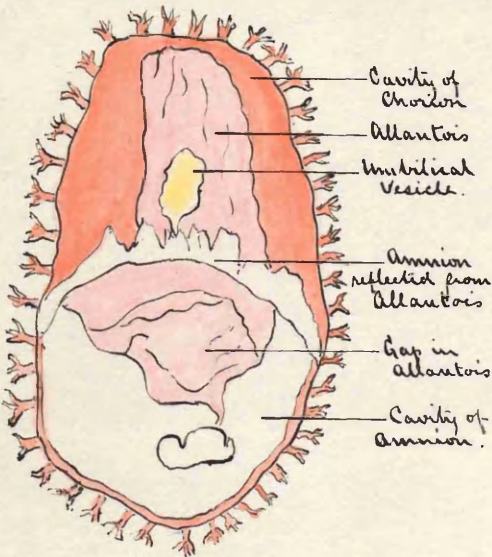 Cavity of
Chorion
Allantois
Umbilical
Vesicle.
Amnion
reflected from
Allantois
Gap in
Allantois
Cavity of
Amnion.